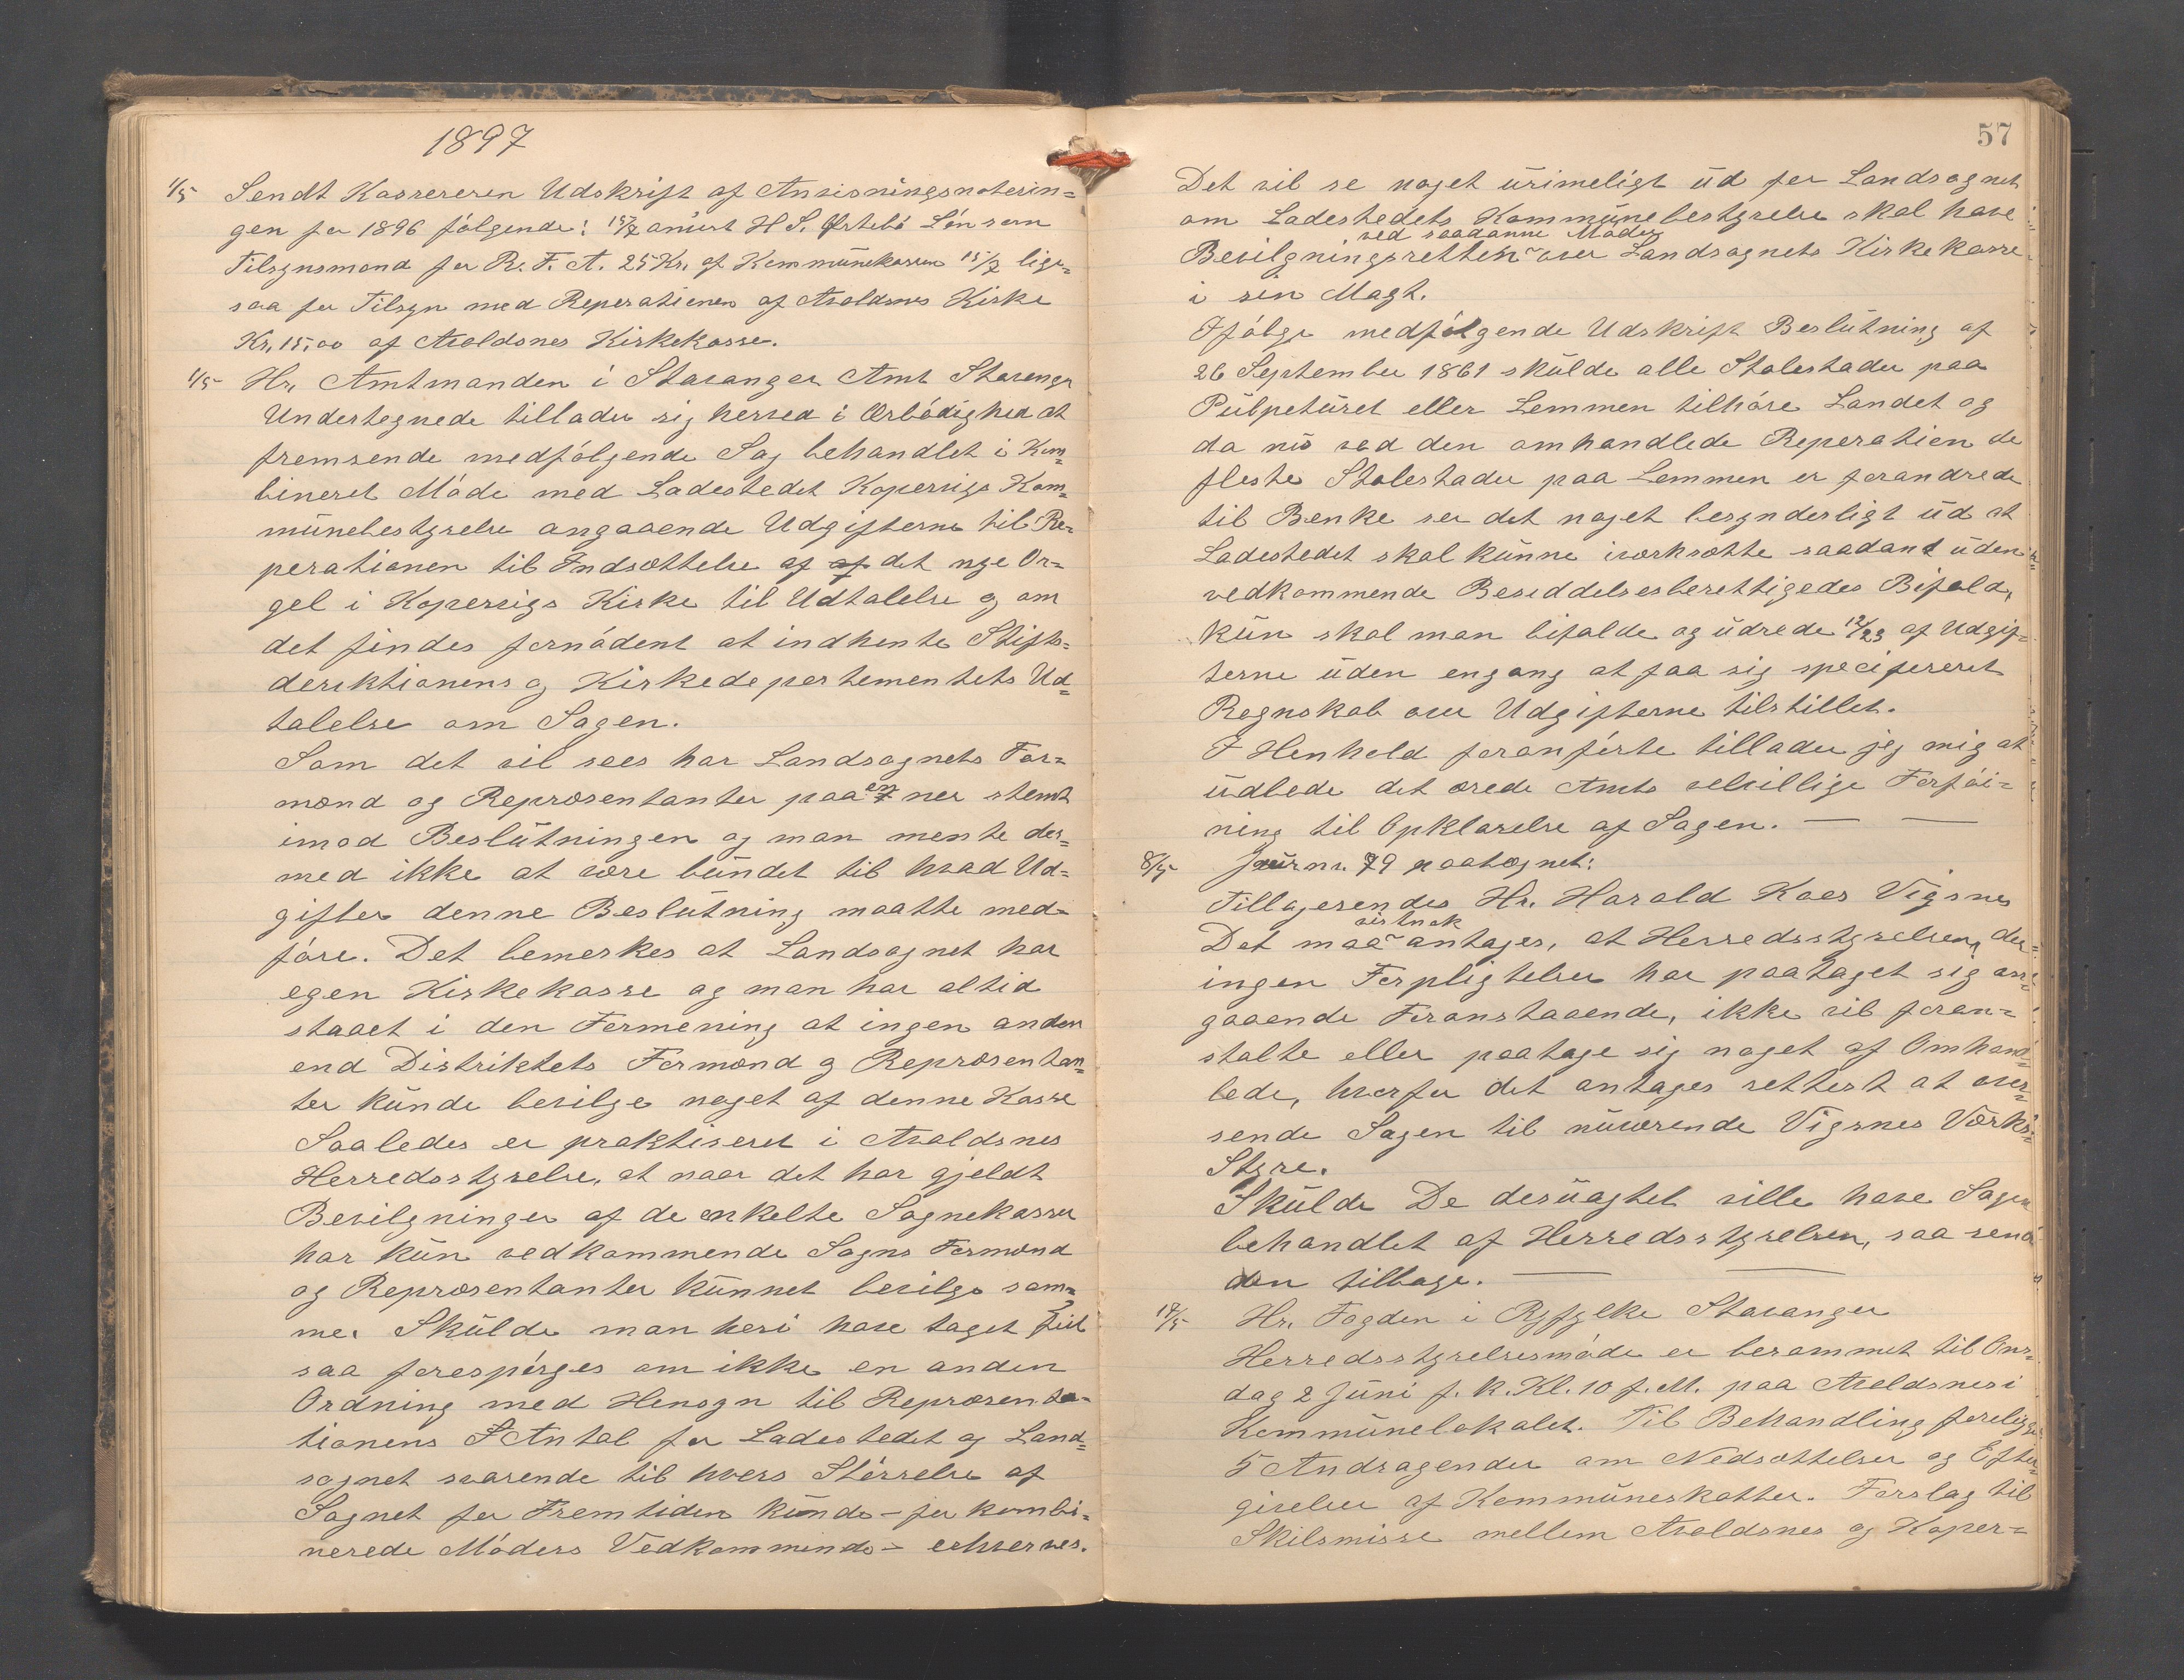 1897
1/5 Sendt Kassereren Udskrift af Anvisningsnoterin=
gen for 1896 følgende: 15/7 anvist H S. Østebø Løn som
Tilsynsmand for R. F. A. 25 Kr. af Kommunekassen 15/7 lige=
saa for Tilsyn med Reperationen af Avaldsnes Kirke
Kr. 15,00 af Avaldsnes Kirkekasse.
1/5 Hr. Amtmanden i Stavanger Amt Stavanger
Undertegnede tillader sig herved i Ærbødighed at
fremsende medfølgende Sag behandlet i Kom=
bineret Møde med Ladestedet Kopervigs Kom=
munebestyrelse angaaende Udgifterne til Re=
perationen til Indsættelse af af det nye Or=
gel i Kopervigs Kirke til Udtalelse og om
det findes fornødent at indhente Stifts=
derektionens og Kirkedepertementets Ud=
talelse om Sagen.
Som det vil sees har Landsognets For=
mænd og Repræsentanter paa en nær stemt
imod Beslutningen og man mente der=
med ikke at være bundet til hvad Ud=
gifter denne Beslutning maatte med=
føre. Det bemerkes at Landsognet har
egen Kirkekasse og man har altid
staaet i den Formening at ingen anden
end Distriktets Formænd og Repræsentan=
ter kunde bevilge noget af denne Kasse
Saaledes er praktiseret i Avaldsnes
Herredsstyrelse, at naar det har gjeldt
Bevilgninger af de enkelte Sognekasser
har kun vedkommende Sogns Formænd
og Repræsentanter kunnet bevilge sam=
me. Skulde man heri have taget feil
saa forespørges om ikke en anden
Ordning med Hensyn til Repræsenta=
tionens Antal for Ladestedet og Land=
sognet svarende til hvers Størrelse af
Sognet for Fremtiden kunde – for kombi=
nerede Møders Vedkommende – erhverves.
57
Det vil se noget urimeligt ud for Landsognet
om Ladestedets Kommunebestyrelse skal have
ved saadanne Møder
Bevilgningsretten over Landsognets Kirkekasse
i sin Magt.
Ifølge medfølgende Udskrift Beslutning af
26 September 1861 skulde alle Stolestader paa
Pulpeturet eller Lemmen tilhøre Landet og
da nu ved den omhandlede Reperation de
fleste Stolestader paa Lemmen er forandrede
til Benke ser det noget besynderligt ud at
Ladestedet skal kunne iværksætte saadant uden
vedkommende Besiddelsesberettigedes Bifald,
kun skal man bifalde og udrede 12/23 af Udgif=
terne uden engang at faa sig specifereret
Regnskab over Udgifterne tilstillet.
I Henhold foranførte tillader jeg mig at
udbede det ærede Amts velvillige Forføi=
ning til Opklarelse af Sagen. — —
8/5 Jour nr. 79 paategnet:
Tillagesendes Hr. Harald Kaes Vigsnes
vistnok
Det maa antages, at Herredsstyrelsen, der
ingen Forpligtelser har paataget sig an=
gaaende Foranstaaende, ikke vil foran=
stalte eller paatage sig noget af Omhand=
lede, hvorfor det antages rettest at over=
sende Sagen til nuværende Vigsnes Værks=
Styre.
Skulde De desuagtet ville have Sagen
behandlet af Herredsstyrelsen, saa send
den tilbage. — —
17/5 Hr. Fogden i Ryfylke Stavanger
Herredsstyrelsesmøde er berammet til Ons=
dag 2 Juni f. k. Kl. 10 f. M. paa Avaldsnes i
Kommunelokalet. Til Behandling foreligger
5 Andragender om Nedsættelser og Efter=
givelser af Kommuneskatter. Forslag til
Skilsmisse mellem Avaldsnes og Koper=